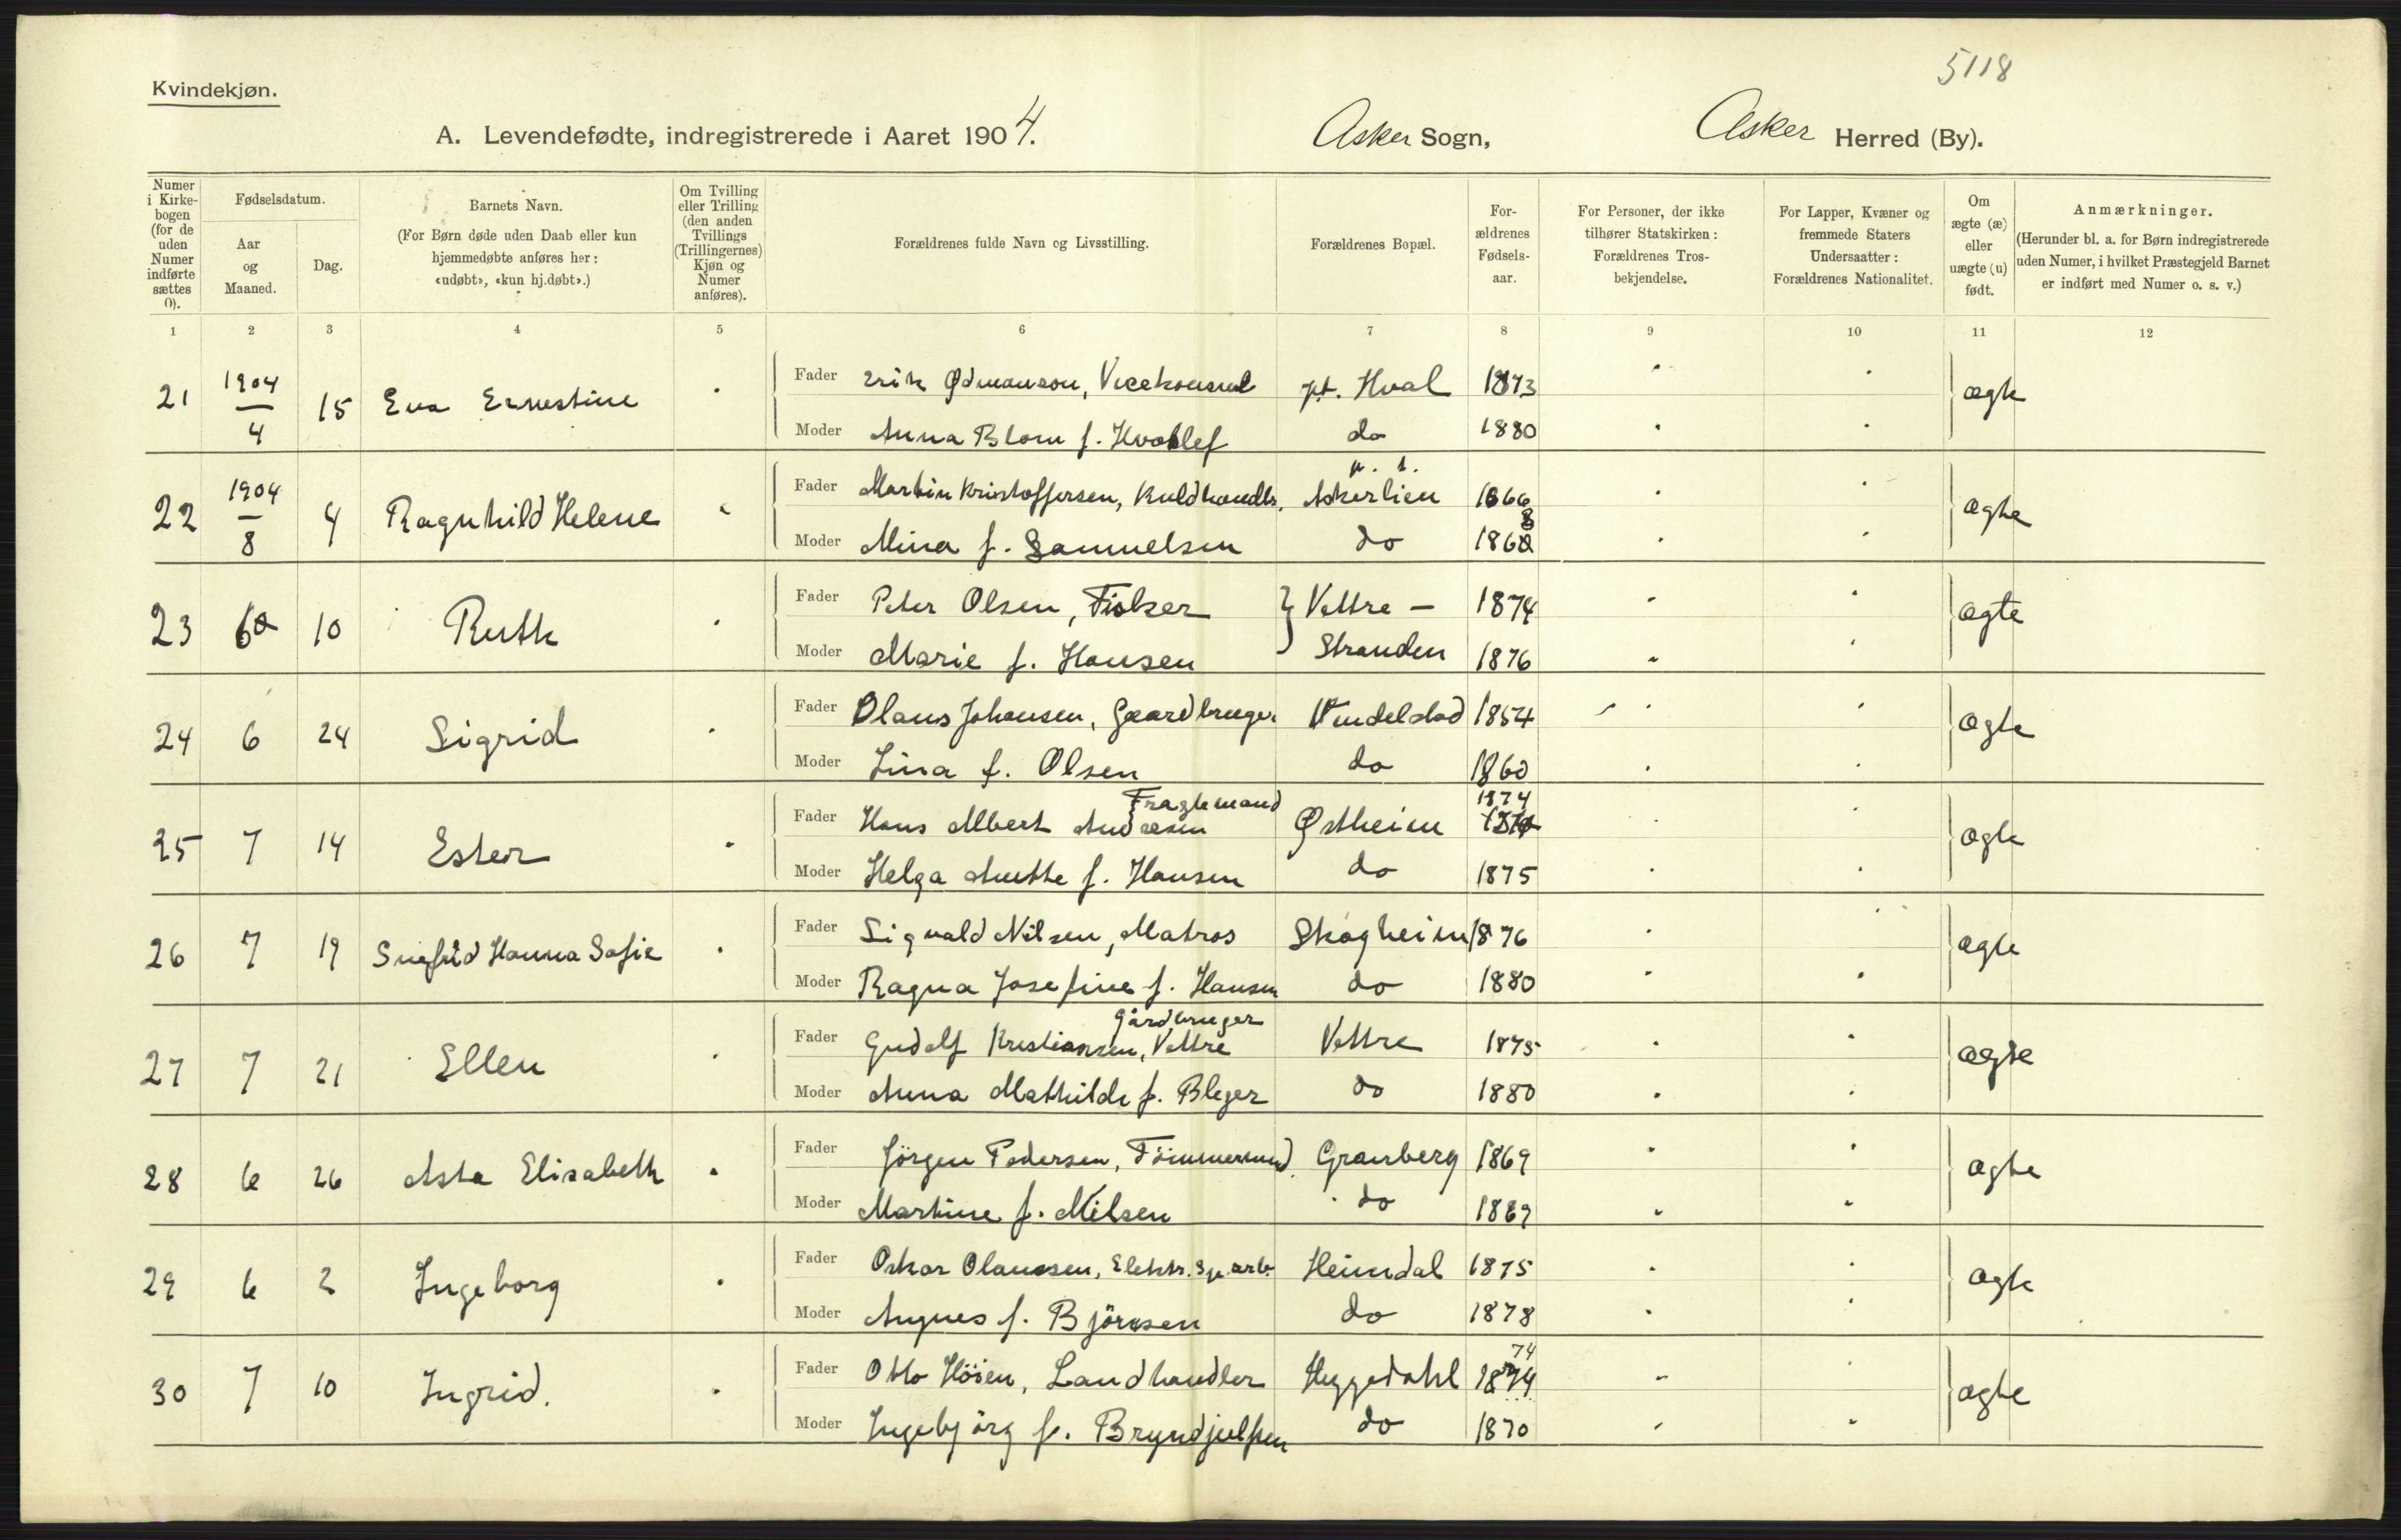 5118
Kvindekjøn.
A. Levendefødte, indregistrerede i Aaret 1904. Asker Sogn, Asker Herred (By).
Numer i Kirkebogen (for de uden Numer indførte sættes 0).
Fødselsdatum.
Aar og Maaned.
Dag.
Barnets Navn.
(For Børn døde uden Daab eller kun hjemmedøbte anføres her: «udøbt», «kun hj.døbt».)
Om Tvilling eller Trilling (den anden Tvillings (Trillingernes) Kjøn og Numer anføres).
Forældrenes fulde Navn og Livsstilling.
Forældrenes Bopæl.
Forældrenes Fødselsaar.
For Personer, der ikke tilhører Statskirken: Forældrenes Trosbekjendelse.
For Lapper, Kvæner og fremmede Staters Undersaatter: Forældrenes Nationalitet.
Om ægte (æ) eller uægte (u) født.
Anmærkninger.
(Herunder bl. a. for Børn indregistrerede uden Numer, i hvilket Præstegjeld Barnet er indført med Numer o. s. v.)
1 2 3 4 5 6 7 8 9 10 11 12
21 1904 4 15 Eva Ernestine Fader Erik Ødmanson, Vicekonsul pt. Hval 1873 ægte
Moder Anna Blom f. Hvoslef do 1880
22 1904 8 4 Ragnhild Helene Fader Martin Kristoffersen, Kuldhandlr. p. t. Askerlien 1866 ægte
Moder Mina f. Samuelsen do 1868
23 6 10 Ruth Fader Peter Olsen, Fisker Vettre- 1874 ægte
Moder Marie f. Hansen Stranden 1876
24 6 24 Sigrid Fader Olaus Johansen, Gaardbruger 1854 ægte
Moder Lina f. Olsen do 1860
25 7 14 Ester Fader Hans Albert Andersen Fragtemand Østheim 1874 ægte
Moder Helga Anette f. Hansen do 1875
26 7 19 Hanna Sofie Fader Sigvald Nilsen, Matros Skogheim 1876 ægte
Moder Ragna Josefine f. Hansen do 1880
27 7 21 Ellen Fader Gudolf Kristiansen, Vettre Gårdbruger Vettre 1875 ægte
Moder Anna Mathilde f. Bleger do 1880
28 6 26 Asta Elisabeth Fader Jörgen Pedersen, Tömmermand Granberg 1869 ægte
Moder Martine f. Nilsen do 1869
29 6 2 Ingeborg Fader Oskar Olaussen, Elektr. Sp. arb. Heimdal 1875 ægte
Moder Agnes f. Björnsen do 1878
30 7 10 Ingrid. Fader Otto Höien, Landhandler Heggedahl 1874 74 ægte
Moder Ingebjörg f. Bryndjulfsen do 1870